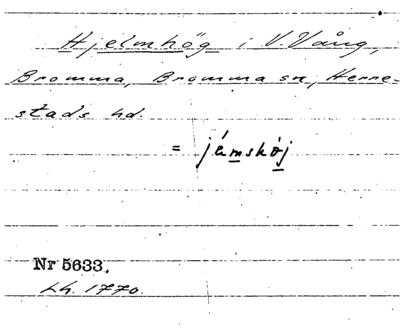 Hjelmhög i V. Vång,
Bromma, Bromma sn, Herre-
stads hd.
= jämshöj
Nr 5633.
Lh. 1770.